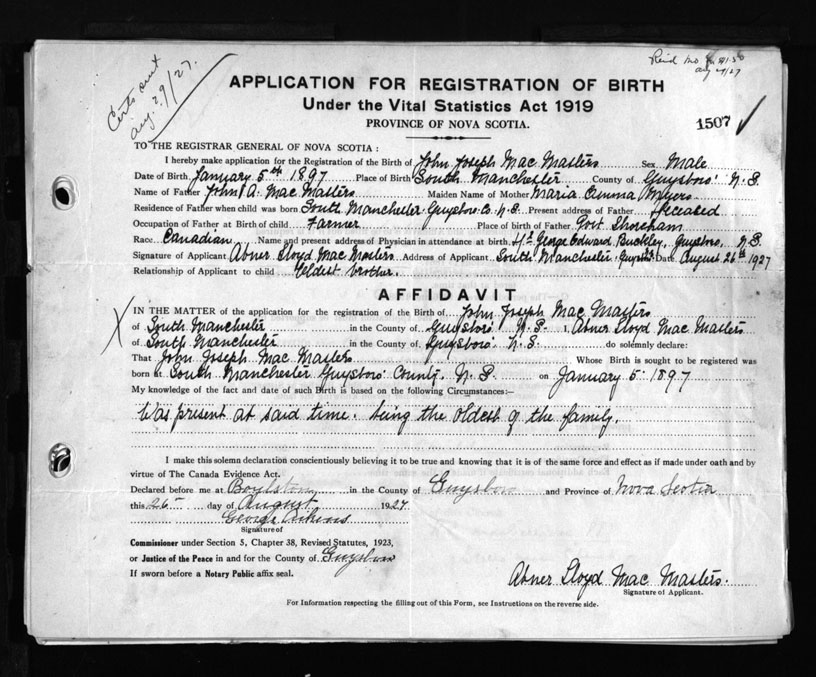 Certs sent
Aug. 29/27.
Aug 29/27
APPLICATION FOR REGISTRATION OF BIRTH
Under the Vital Statistics Act 1919
PROVINCE OF NOVA SCOTIA.
1507
TO THE REGISTRAR GENERAL OF NOVA SCOTIA :
I hereby make application for the Registration of the Birth of John Joseph Mac Masters Sex Male
Date of Birth January 5th 1897 Place of Birth South Manchester County of Guysboro' N.S.
Name of Father John A. Mac Masters Maiden Name of Mother Maria Emma Myers
Residence of Father when child was born South Manchester Guysboro Co. N.S. Present address of Father Deceased
Occupation of Father at Birth of child Farmer Place of birth of Father Port Shoreham
Race Canadian Name and present address of Physician in attendance at birth George Edward Buckley, Guysboro. N.S.
Signature of Applicant Abner Lloyd Mac Masters Address of Applicant South Manchester Guysboro Date August 26th 1927
Relationship of Applicant to child Eldest brother.
AFFIDAVIT
IN THE MATTER of the application for the registration of the Birth of John Joseph Mac Masters
of South Manchester in the County of Guysboro' N.S. I, Abner Lloyd Mac Masters
of South Manchester in the County of Guysboro' N.S. do solemnly declare:
That John Joseph Mac Masters Whose Birth is sought to be registered was
born at South Manchester Guysboro' County, N.S. on January 5' 1897
My knowledge of the fact and date of such Birth is based on the following Circumstances:—
Was present at said time. being the oldest of the family.
I make this solemn declaration conscientiously believing it to be true and knowing that it is of the same force and effect as if made under oath and by
virtue of The Canada Evidence Act.
Declared before me at Boylston in the County of Guysboro and Province of Nova Scotia
this 26 day of August 1927
George Aikens
Signature of
Commissioner under Section 5, Chapter 38, Revised Statutes, 1923,
or Justice of the Peace in and for the County of Guysboro
If sworn before a Notary Public affix seal.
Abner Lloyd Mac Masters.
Signature of Applicant.
For Information respecting the filling out of this Form, see Instructions on the reverse side.